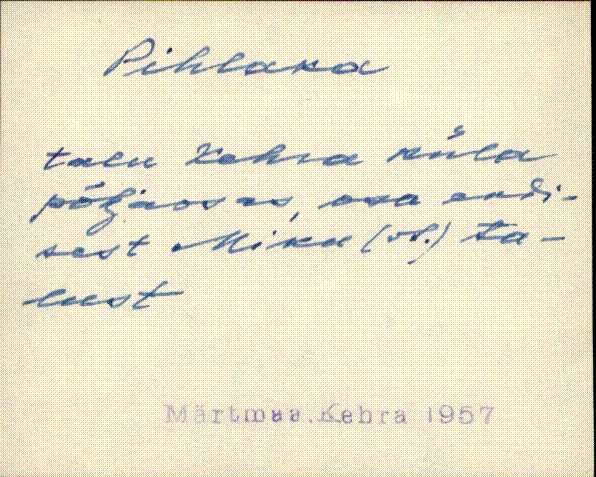 Pihlaka
talu Kehra küla
põhjaosas, osa endi-
sest Miku (vt.) ta-
lust
Märtmaa, Kehra 1957